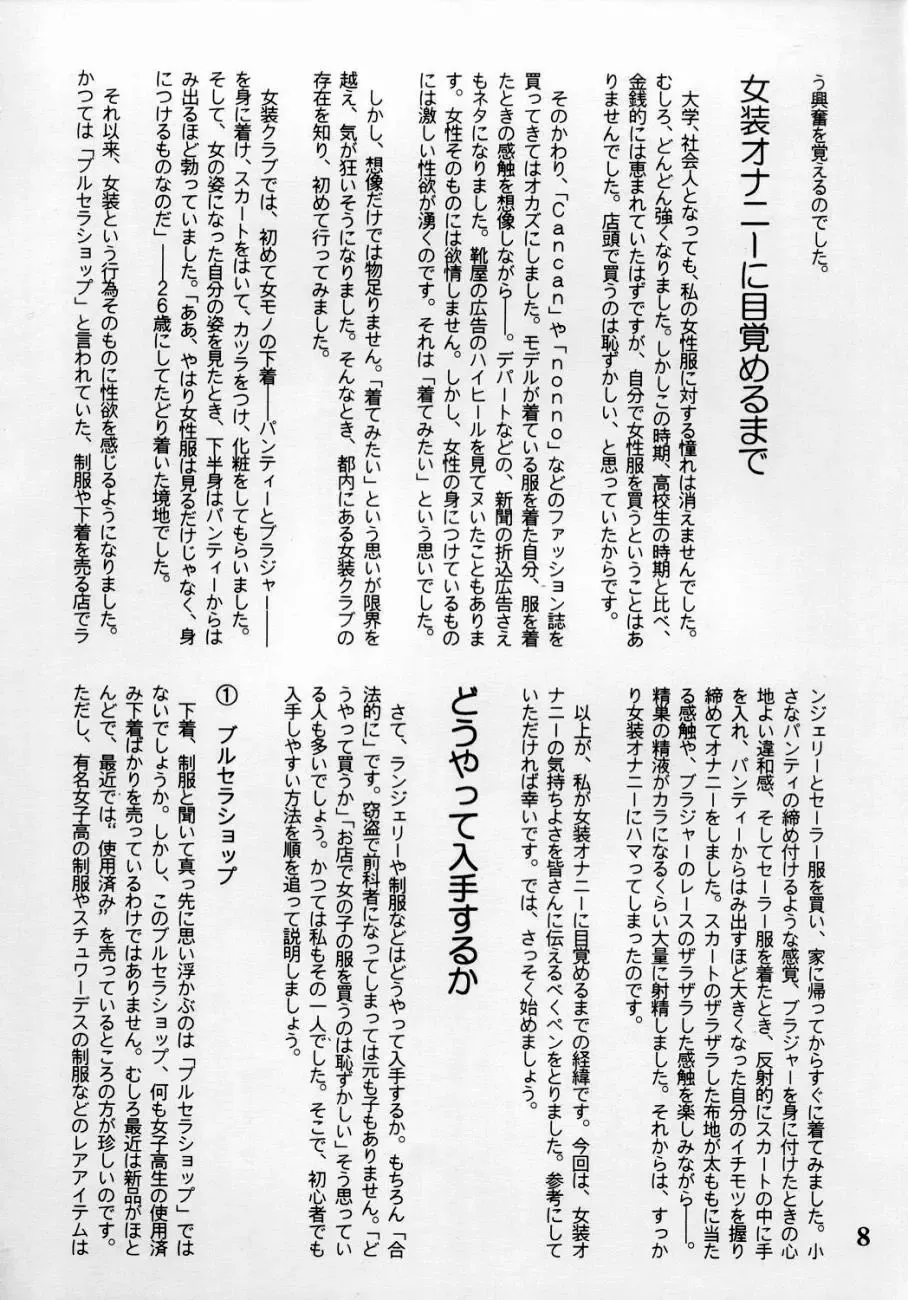 う興奮を覚えるのでした。
女装オナニーに目覚めるまで
大学、社会人となっても、私の女性服に対する憧れは消えませんでした。
むしろ、どんどん強くなりました。しかしこの時期、高校生の時期と比べ、
金銭的には恵まれていたはずですが、自分で女性服を買うということはあ
りませんでした。店頭で買うのは恥ずかしい、と思っていたからです。
そのかわり、「Cancan」や「nonno」などのファッション誌を
買ってきてはオカズにしました。モデルが着ている服を着た自分、服を着
たときの感触を想像しながら――。デパートなどの、新聞の折込広告さえ
もネタになりました。靴屋の広告のハイヒールを見てヌいたこともありま
す。女性そのものには欲情しません。しかし、女性の身につけているもの
には激しい性欲が湧くのです。それは「着てみたい」という思いでした。
しかし、想像だけでは物足りません。「着てみたい」という思いが限界を
越え、気が狂いそうになりました。そんなとき、都内にある女装クラブの
存在を知り、初めて行ってみました。
女装クラブでは、初めて女モノの下着――パンティーとブラジャー――
を身に着け、スカートをはいて、カツラをつけ、化粧をしてもらいました。
そして、女の姿になった自分の姿を見たとき、下半身はパンティーからは
み出るほど勃っていました。「ああ、やはり女性服は見るだけじゃなく、身
につけるものなのだ」――26歳にしてたどり着いた境地でした。
それ以来、女装という行為そのものに性欲を感じるようになりました。
かつては「ブルセラショップ」と言われていた、制服や下着を売る店でラ
ンジェリーとセーラー服を買い、家に帰ってからすぐに着てみました。小
さなパンティの締め付けるような感覚、ブラジャーを身に付けたときの心
地よい違和感、そしてセーラー服を着たとき、反射的にスカートの中に手
を入れ、パンティーからはみ出すほど大きくなった自分のイチモツを握り
締めてオナニーをしました。スカートのザラザラした布地が太ももに当た
る感触や、ブラジャーのレースのザラザラした感触を楽しみながら――。
精巣の精液がカラになるくらい大量に射精しました。それからは、すっか
り女装オナニーにハマってしまったのです。
以上が、私が女装オナニーに目覚めるまでの経緯です。今回は、女装オ
ナニーの気持ちよさを皆さんに伝えるべくペンをとりました。参考にして
いただければ幸いです。では、さっそく始めましょう。
どうやって入手するか
さて、ランジェリーや制服などはどうやって入手するか。もちろん「合
法的に」です。窃盗で前科者になってしまっては元も子もありません。「ど
うやって買うか」「お店で女の子の服を買うのは恥ずかしい」そう思ってい
る人も多いでしょう。かつては私もその一人でした。そこで、初心者でも
入手しやすい方法を順を追って説明しましょう。
① ブルセラショップ
下着、制服と聞いて真っ先に思い浮かぶのは「ブルセラショップ」では
ないでしょうか。しかし、このブルセラショップ、何も女子高生の使用済
み下着ばかりを売っているわけではありません。むしろ最近は新品がほと
んどで、最近では“使用済み”を売っているところの方が珍しいのです。
ただし、有名女子高の制服やスチュワーデスの制服などのレアアイテムは
8